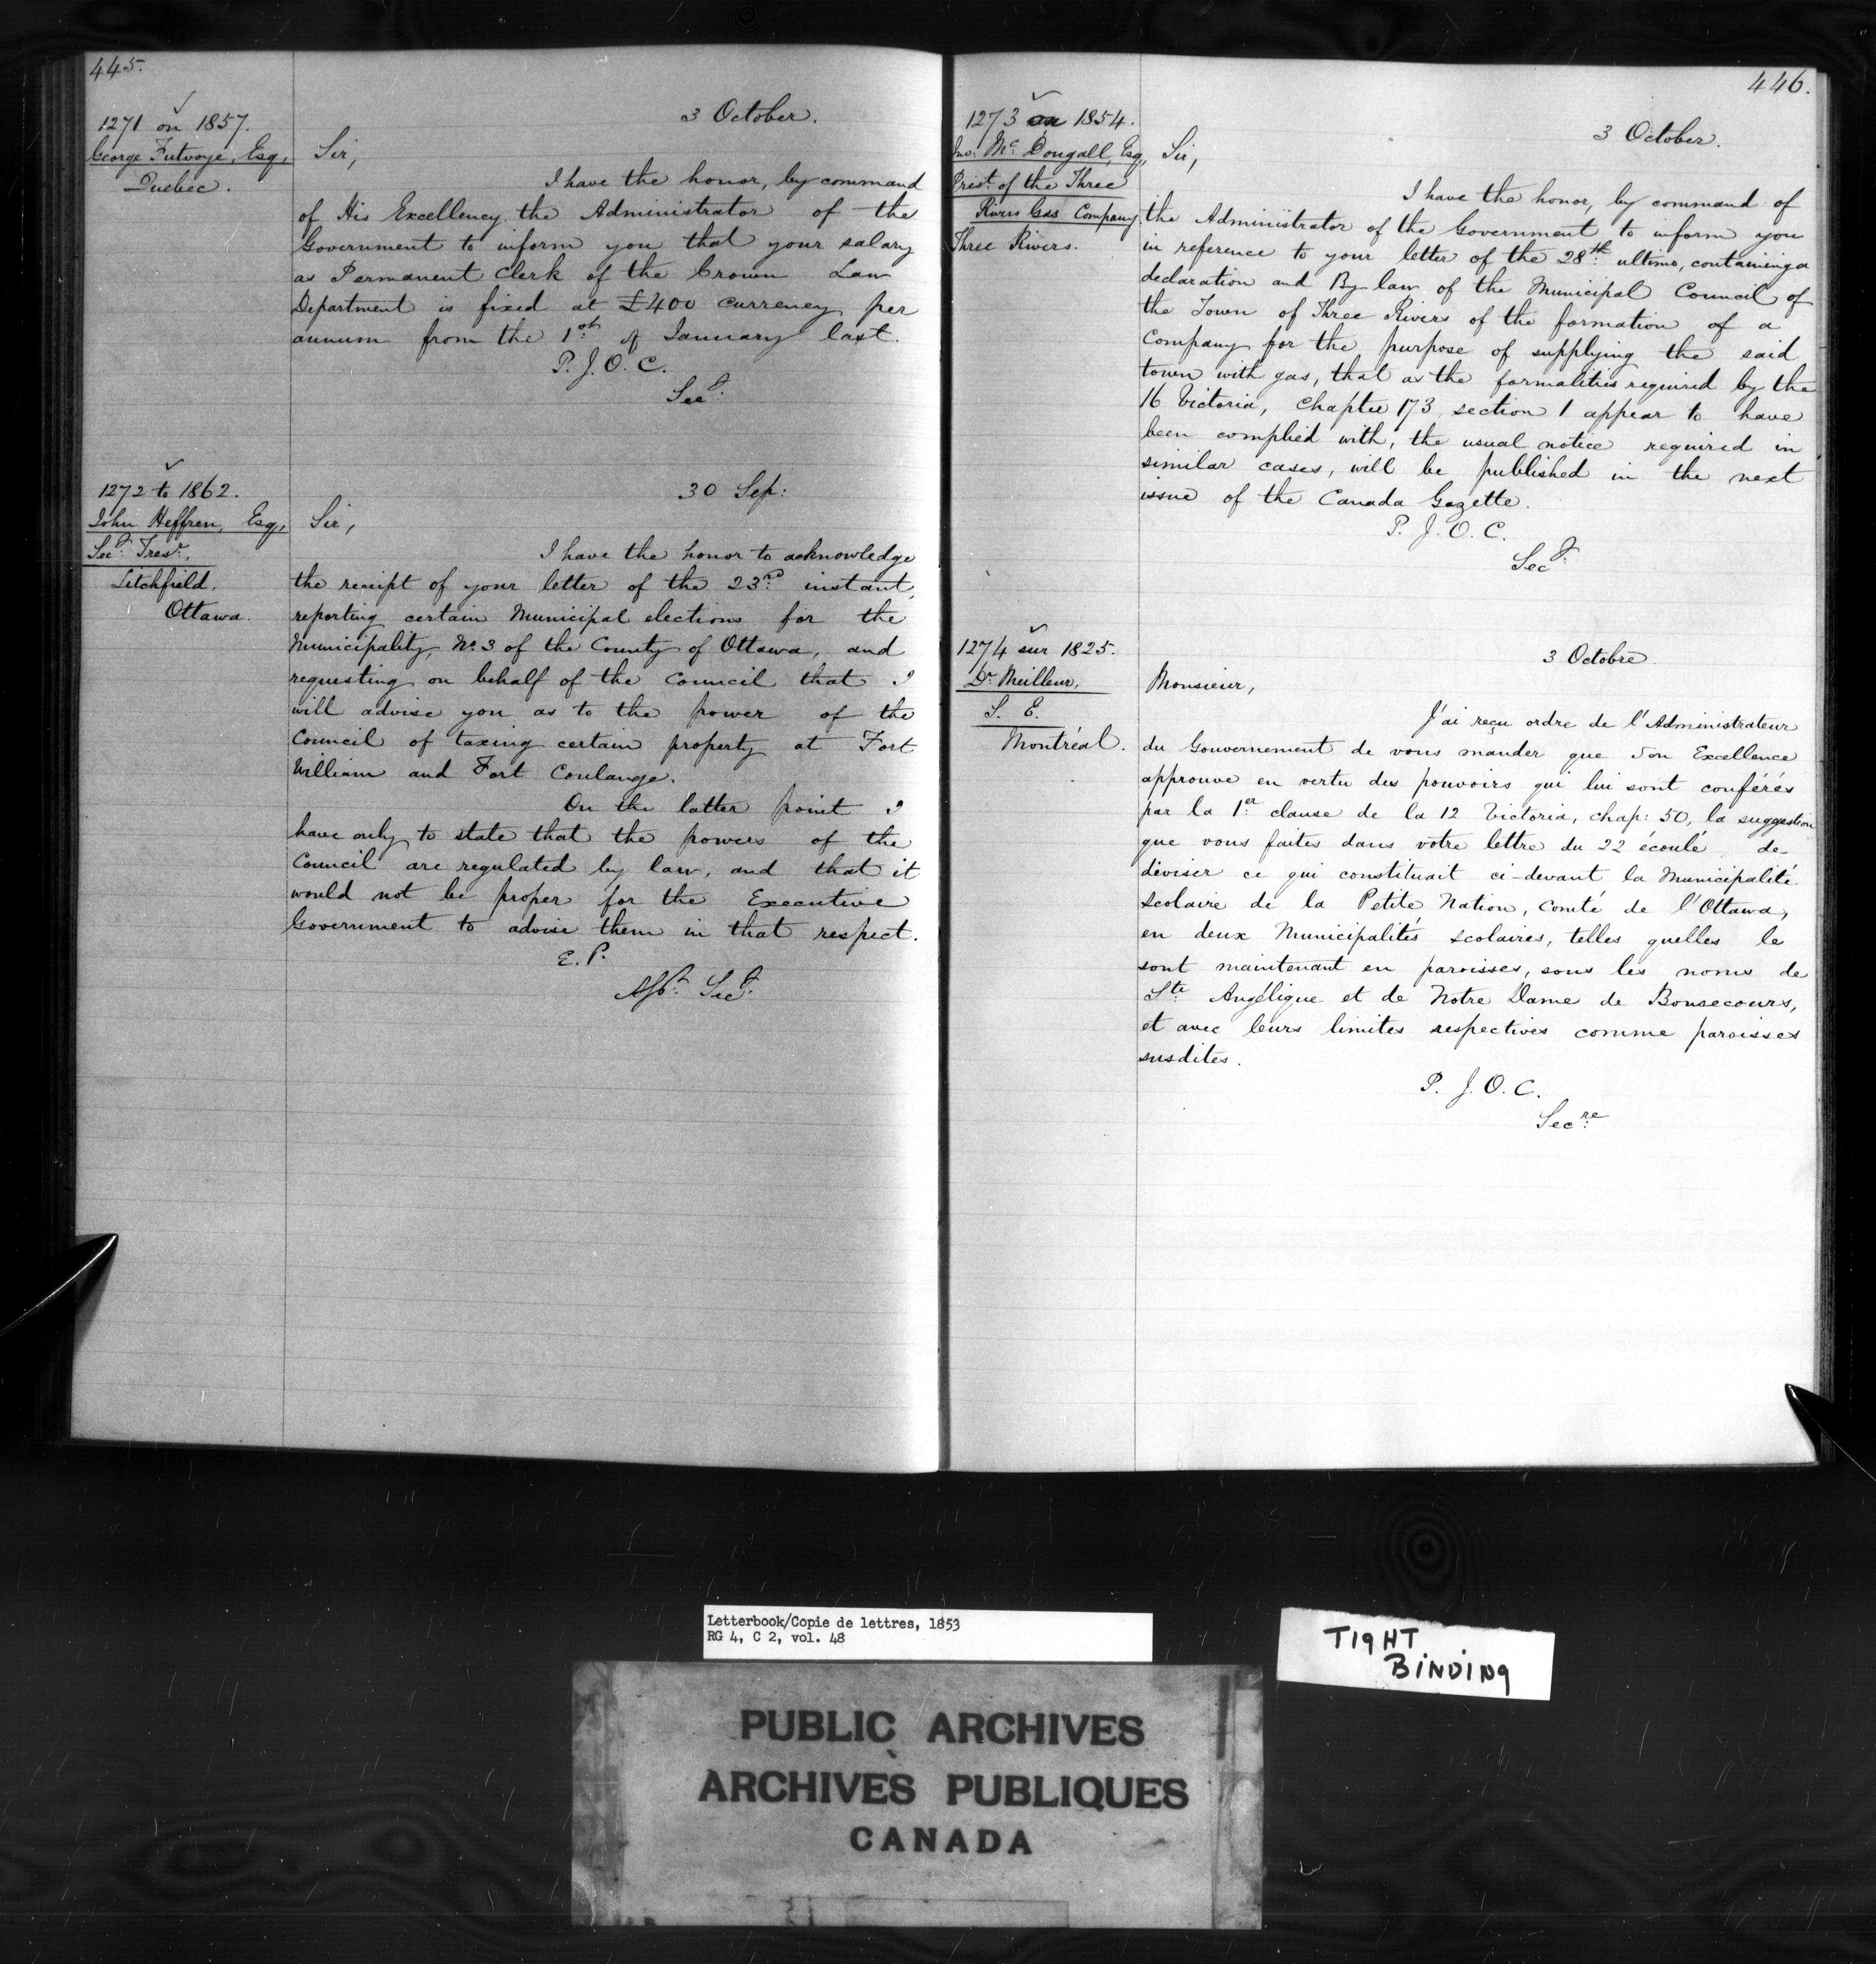 445.
1271 on 1857.
George Futvoye, Esq,
Quebec.
3 October.
Sir,
I have the honor, by command
of His Excellency the Administrator of the
Government to inform you that your salary
as Permanent Clerk of the Crown Law
Department is fixed at £400 currency per
annum from the 1st of January last.
P. J. O. C.
Secy.
1272 to 1862.
John Heffren, Esq,
Secy. Tresr.
Litchfield.
Ottawa.
30 Sep:
Sir,
I have the honor to acknowledge
the receipt of your letter of the 23rd instant,
reporting certain Municipal elections for the
Municipality, No. 3 of the County of Ottawa, and
requesting on behalf of the Council that I
will advise you as to the power of the
Council of taxing certain property at Fort
William and Fort Coulange.
On the latter point I
have only to state that the powers of the
Council are regulated by law, and that it
would not be proper for the Executive
Government to advise them in that respect.
E. P.
Asst. Secy.
446.
1273 on 1854.
Jno. Mc. Dougall, Esq,
Prest. of the Three
Rivers Gas Company
Three Rivers.
3 October.
Sir,
I have the honor, by command of
the Administrator of the Government to inform you
in reference to your letter of the 28th ultimo, containing a
declaration and By law of the Municipal Council of
the Town of Three Rivers of the formation of a
Company for the purpose of supplying the said
town with gas, that as the formalities required by the
16 Victoria, Chapter 173, section 1 appear to have
been complied with, the usual notice required in
similar cases, will be published in the next
issue of the Canada Gazette.
P. J. O. C.
Secy.
1274 sur 1825.
Dr. Meilleur,
S. E.
Montréal.
3 Octobre.
Monsieur,
J'ai reçu ordre de l'Administrateur
du Gouvernement de vous mander que Son Excellence
approuve en vertu des pouvoirs qui lui sont conférés
par la 1er clause de la 12 Victoria, chap: 50, la suggestion
que vous faites dans votre lettre du 22 écoulé de-
diviser ce qui constituait ci-devant la Municipalité
scolaire de la Petite Nation, Comté de l'Ottawa,
en deux Municipalités scolaires, telles quelles le
sont maintenant en paroisses, sous les noms de
Ste Angélique et de Notre Dame de Bonsecours,
et avec leurs limites respectives comme paroisses
susdites.
P. J. O. C.
Secre
Letterbook/Copie de lettres, 1853
RG 4, C 2, vol. 48
TIGHT
BINDING
PUBLIC ARCHIVES
ARCHIVES PUBLIQUES
CANADA